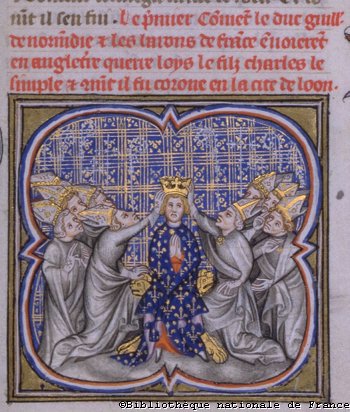 nit il sen fui. Le p̃mier Cõment le duc guill̃.
de normẽdie ⁊ les barons de france enuoierẽt
en anglet̃re querre loys le filz charles le
simple ⁊ cõmẽt il fu corone en la cite de loon.
©Bibliothèque nationale de France